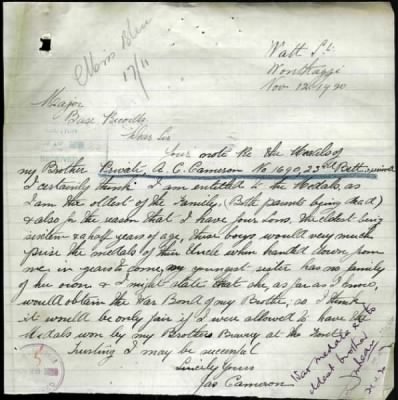 Watt St.
Wonthaggi
Nov 12th 1920
17/11
Major
Base Records
Dear Sir
Yours wrote re the Medals of
my Brother Private A. C. Cameron No 1690, 23rd Batt. received
I certainly think I am entitled to the Medals, as
I am the oldest of the Family, (Both parents being dead)
& also for the reason that I have four sons, the eldest being
sixteen & a half years of age, these boys would very much
prize the medals of their Uncle when handed down from
me, in years to come, my youngest sister has no family
of her own & I might state that she, as far as I know,
would obtain the War Bond of my Brother, so I think
it would be only fair if I were allowed to have the
Medals won by my Brothers Bravery at the Front
Trusting I may be successful
Sincerly Yours
Jas Cameron
War medals etc to
eldest brother
5